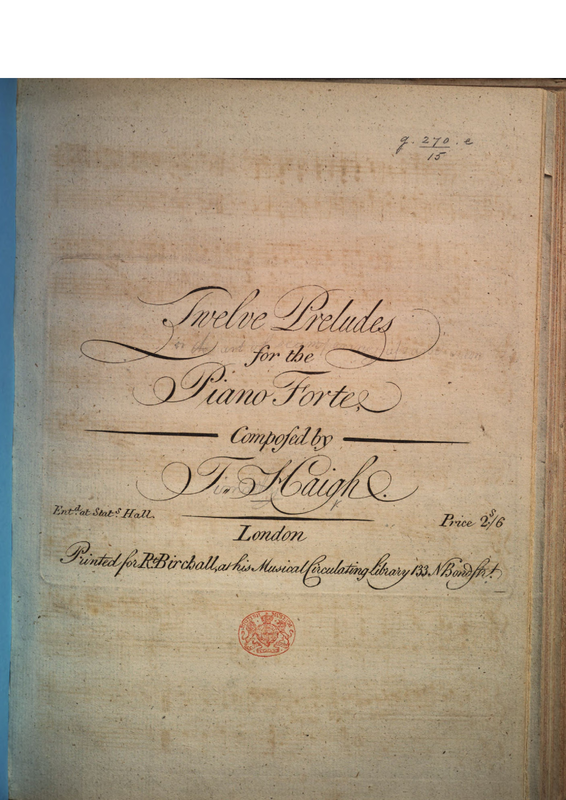 g. 270. e
15
Twelve Preludes
for the
Piano Forte,
Compoſed by
T. Haigh.
Entd. at Stats. Hall.
Price 2s/6
London
Printed for Rt. Birchall, at his Musical Circulating Library 133 N Bond Strt.